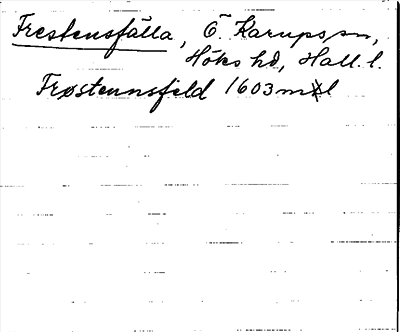 Frestensfälla, Ö. Karups sn,
Höks hd, Hall. l.
Frøstennsfeld 1603 ml